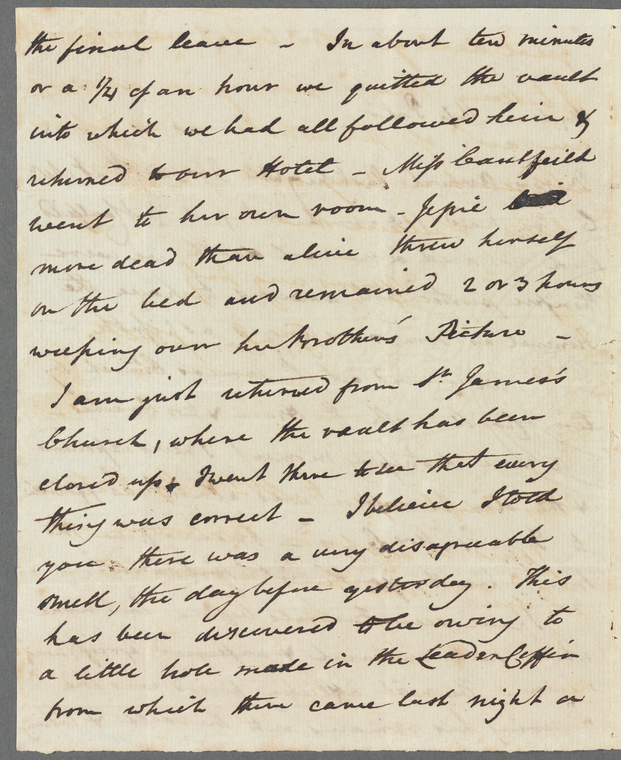 the final leave - In about ten minutes
or a 1/4 of an hour we quitted the vault
into which we had all followed him &
returned to our Hotel - Miss Caulfeild
went to her own room - Jessie
more dead than alive threw herself
on the bed and remained 2 or 3 hours
weeping over her Brother's Picture -
I am just returned from St. James's
Church, where the vault has been
closed up & I went there to see that every
thing was correct - I believe I told
you there was a very disagreeable
smell, the day before yesterday. This
has been discovered to be owing to
a little hole made in the Leaden Coffin
from which there came last night a